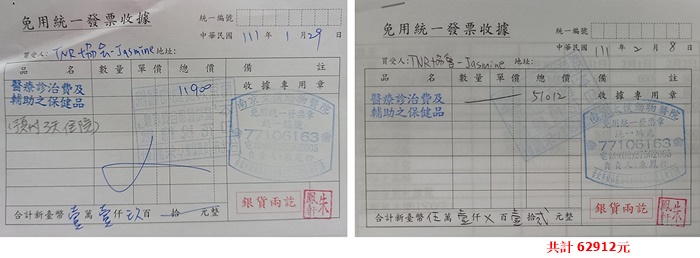 免用統一發票收據
統一編號
中華民國 111 年 1 月 29 日
買受人：TNR協會-Jasmine 地址：
品名 數量 單價 總價 備註
醫療診治費及
輔助之保健品
11900
收據專用章
免用統一發票
77106163
銀貨兩訖
合計新臺幣 壹萬壹仟玖百 拾 元整
免用統一發票收據
統一編號
中華民國 111 年 2 月 8 日
買受人：TNR協會-Jasmine 地址：
品名 數量 單價 總價 備註
醫療診治費及
輔助之保健品
51012
收據專用章
免用統一發票
統一編號
77106163
銀貨兩訖
合計新臺幣 伍萬壹仟X百壹拾貳元整
共計 62912元